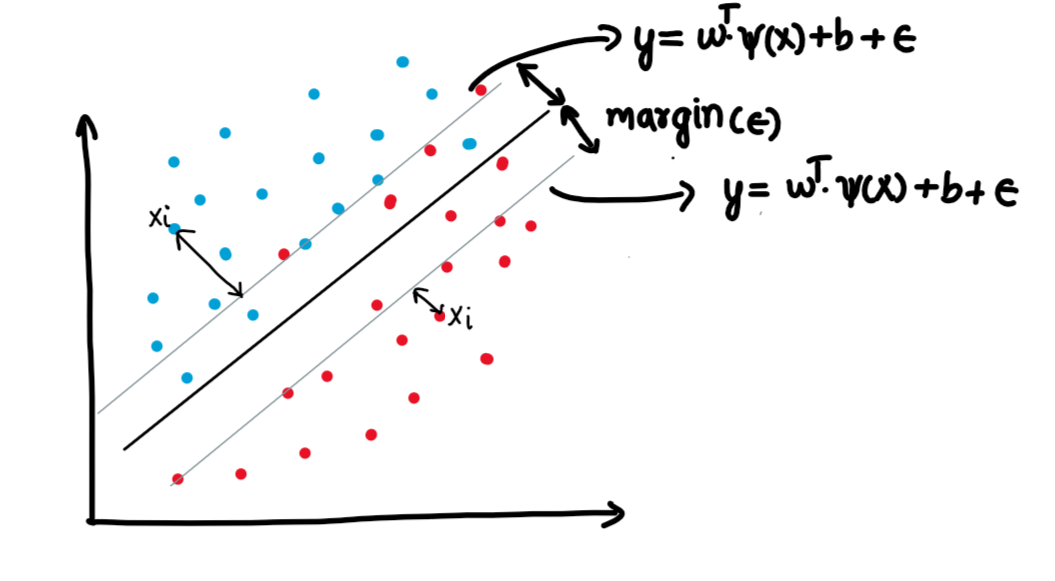 y= wᵀ·ψ(x)+b+ϵ
margin(ϵ)
y= wᵀ·ψ(x)+b+ϵ
xi
xi